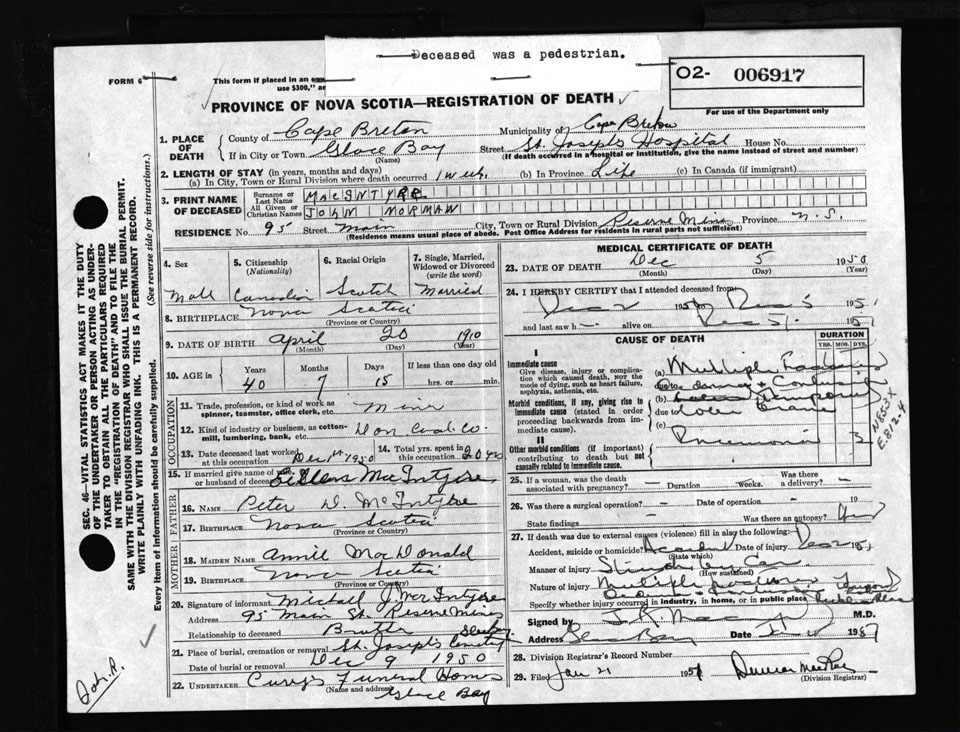 Deceased was a pedestrian.
FORM 6
This form if placed in an
use $300," ar
O2- 006917
For use of the Department only
PROVINCE OF NOVA SCOTIA—REGISTRATION OF DEATH
1. PLACE OF DEATH
County of Cape Breton Municipality of Cape Breton
If in City or Town Glace Bay Street St. Joseph's Hospital House No.
(Name) (If death occurred in a hospital or institution, give the name instead of street and number)
2. LENGTH OF STAY (in years, months and days)
(a) In City, Town or Rural Division where death occurred 1 wk. (b) In Province Life (c) In Canada (if immigrant)
3. PRINT NAME OF DECEASED
Surname or Last Name MACINTYRE
All Given or Christian Names JOHN NORMAN
RESIDENCE No. 95 Street Main City, Town or Rural Division Reserve Mines Province N.S.
(Residence means usual place of abode. Post Office Address for residents in rural parts not sufficient)
4. Sex
Male
5. Citizenship (Nationality)
Canadian
6. Racial Origin
Scotch
7. Single, Married, Widowed or Divorced (write the word)
Married
8. BIRTHPLACE Nova Scotia
(Province or Country)
9. DATE OF BIRTH April 20 1910
(Month) (Day) (Year)
10. AGE in Years Months Days If less than one day old
40 7 15 hrs. or min.
OCCUPATION
11. Trade, profession, or kind of work as spinner, teamster, office clerk, etc. Miner
12. Kind of industry or business, as cotton-mill, lumbering, bank, etc. Dom. Coal Co.
13. Date deceased last worked at this occupation Dec 1st 1950
14. Total yrs. spent in this occupation 20 yrs
15. If married give name of wife or husband of deceased MacIntyre
FATHER
16. NAME Peter D. McIntyre
17. BIRTHPLACE Nova Scotia
(Province or Country)
MOTHER
18. MAIDEN NAME Annie MacDonald
19. BIRTHPLACE Nova Scotia
(Province or Country)
20. Signature of informant Michael J. McIntyre
Address 95 Main St. Reserve Mines
Relationship to deceased Brother
21. Place of burial, cremation or removal St. Joseph's Cemetery
Date of burial or removal Dec 9 1950
22. UNDERTAKER Curry's Funeral Homes
(Name and address) Glace Bay
MEDICAL CERTIFICATE OF DEATH
23. DATE OF DEATH Dec 5 1950
(Month) (Day) (Year)
24. I HEREBY CERTIFY that I attended deceased from
Dec 2 195 to Dec 5 195
and last saw h alive on Dec 5 195
CAUSE OF DEATH
DURATION
YRS. MOS. DYS.
I
Immediate cause
Give disease, injury or complication which caused death, not the mode of dying, such as heart failure, asphyxia, asthenia, etc.
(a) Multiple
due to
Morbid conditions, if any, giving rise to immediate cause (stated in order proceeding backwards from immediate cause).
(b)
due to
(c)
II
Other morbid conditions (if important) contributing to death but not causally related to immediate cause.
Pneumonia 3
N853X
E.812.4
25. If a woman, was the death associated with pregnancy? Duration weeks. Was there a delivery?
26. Was there a surgical operation? Date of operation 19
State findings Was there an autopsy?
27. If death was due to external causes (violence) fill in also the following:
Accident, suicide or homicide? Accident Date of injury Dec 2 195
(State which)
Manner of injury Struck by Car
(How sustained)
Nature of injury Multiple
Specify whether injury occurred in industry, in home, or in public place Public Place
Signed by M.D.
Address Glace Bay Date 19
28. Division Registrar's Record Number
29. Filed Jan 21 1951
(Division Registrar)
SEC. 46—VITAL STATISTICS ACT MAKES IT THE DUTY OF THE UNDERTAKER OR PERSON ACTING AS UNDERTAKER TO OBTAIN ALL THE PARTICULARS REQUIRED IN THE "REGISTRATION OF DEATH" AND TO FILE THE SAME WITH THE DIVISION REGISTRAR WHO SHALL ISSUE THE BURIAL PERMIT.
WRITE PLAINLY WITH UNFADING INK. THIS IS A PERMANENT RECORD.
Every item of information should be carefully supplied. (See reverse side for instructions.)